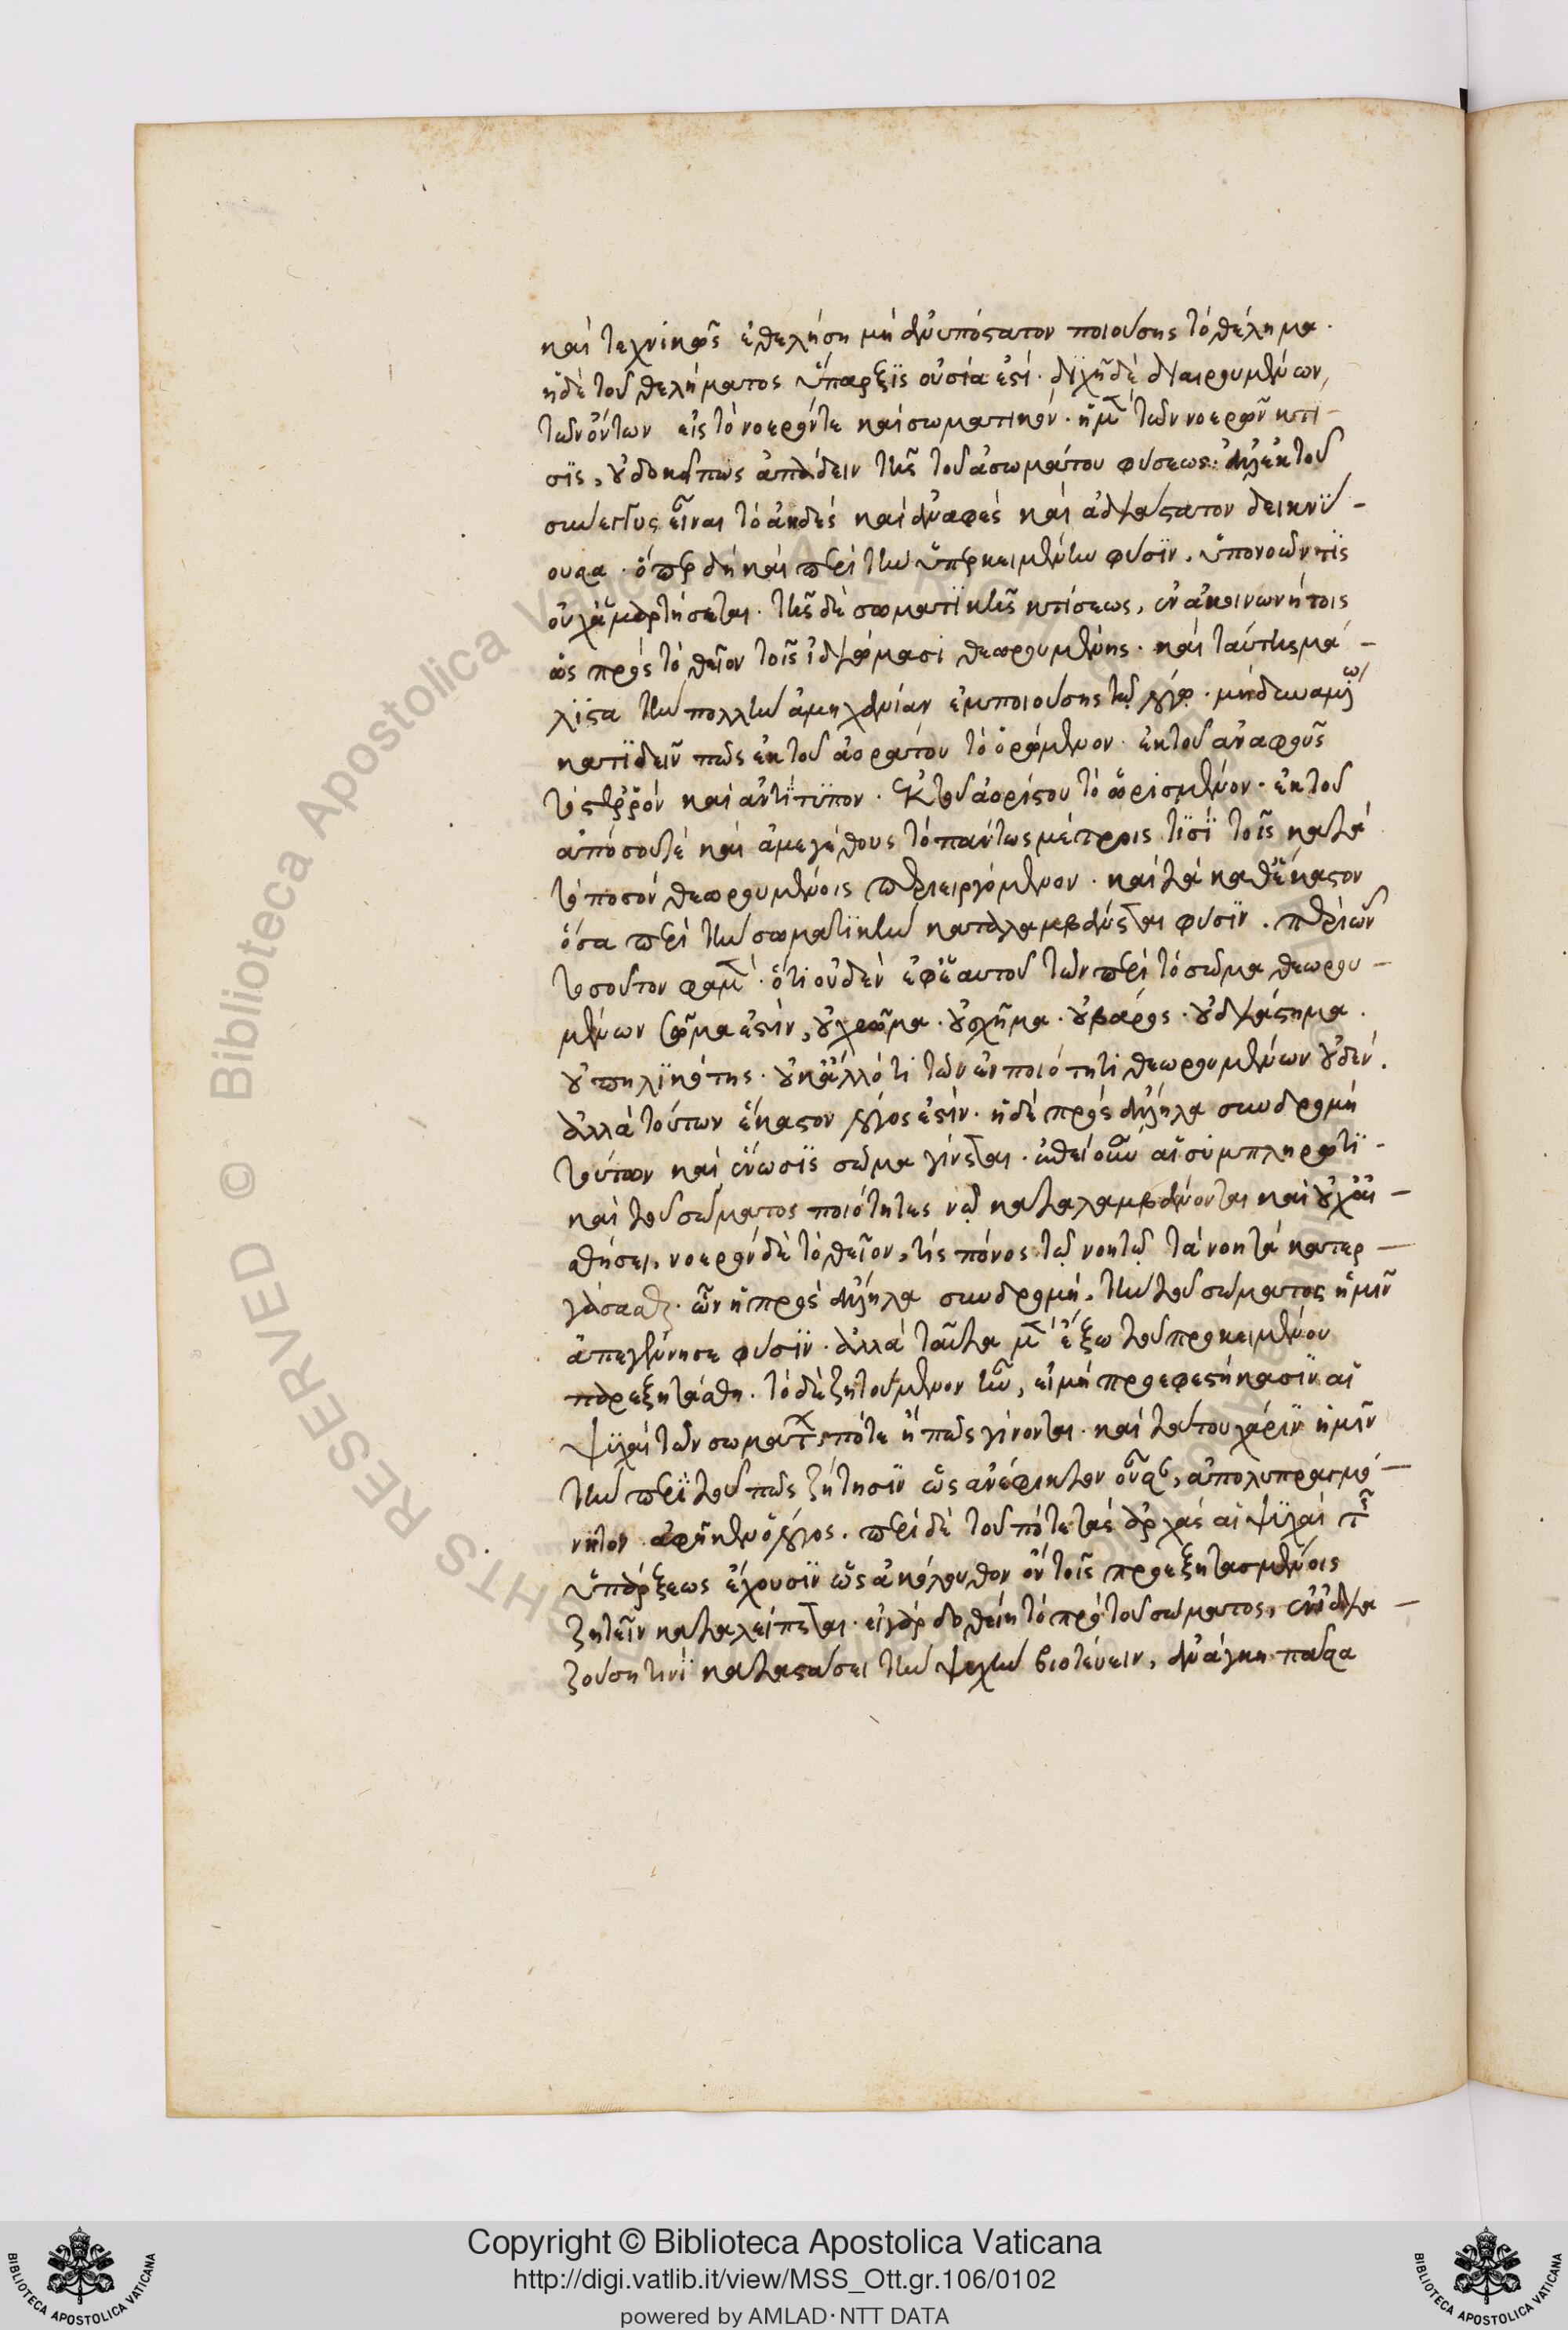 καὶ τεχνικῶς ἐθελήση μὴ ἀνυπόστατον ποιούσης τὸ θέλημα.
ἡ δὲ τοῦ θελήματος ὕπαρξϊς οὐσία ἐστί. διχῇ δὲ διαιρουμένων,
τῶν ὄντων εἰς τὸ νοερόν τε καὶ σωματικόν. ἡ μὲν τῶν νοερῶν κτί-
σϊς, οὐ δοκεῖ πως ἀπάδειν τῆς τοῦ ἀσωμάτου φύσεως. ἀλλ' ἐκ τοῦ
συνεγγυς εἶναι τὸ ἀηδές καὶ ἀναφές καὶ ἀδιάστατον δεικνύ-
ουσα. ὅπερ δὴ καὶ περὶ τὴν ὑπερκειμένην φύσϊν. ὑπονοῶν τϊς
οὐχ ἁμαρτήσεται. τῆς δὲ σωματϊκῆς κτίσεως, ἐν ἀκοινωνήτοις
ὡς πρὸς τὸ θεῖον τοῖς ἰδιώμασι θεωρουμένης. καὶ ταύτης μά-
λϊστα τὴν πολλὴν ἀμηχανίαν ἐμποιούσης τῷ λόγῳ. μὴ δυναμένω
κατϊδεῖν πῶς ἐκ τοῦ ἀοράτου τὸ ὁρώμενον. ἐκ τοῦ ἀναφοῦς
τὸ στερρὸν καὶ ἀντίτυπον. ἐκ τοῦ ἀορίστου τὸ ὡρισμένον. ἐκ τοῦ
ἀπόσου τὲ καὶ ἀμεγέθους τὸ πάντως μέτροις τϊσϊ τοῖς κατὰ
τὸ ποσὸν θεωρουμένοις περιειργόμενον. καὶ τὰ καθέκαστον
ὅσα περὶ τὴν σωματϊκὴν καταλαμβάνεται φύσϊν. περὶ ὧν
τοσοῦτον φαμέν. ὅτι οὐδὲν ἐφ' ἑαυτοῦ τῶν περὶ τὸ σῶμα θεωρου-
μένων σῶμα ἐστὶν, οὐ χρῶμα. οὐ σχῆμα. οὐ βάρος. οὐ διάστημα.
οὐ πηλϊκότης. οὐκ ἄλλό τι τῶν ἐν ποιότητι θεωρουμένων οὐδέν.
ἀλλὰ τούτων ἕκαστον λόγος ἐστίν. ἡ δὲ πρὸς ἄλληλα συνδρομὴ
τούτων καὶ ἕνωσϊς σῶμα γίνεται. ἐπεὶ οὖν αἱ συμπληρωτϊ-
καὶ τοῦ σώματος ποιότητες νῷ καταλαμβάνονται καὶ οὐχ αἰ-
σθήσει, νοερὸν δὲ τὸ θεῖον, τίς πόνος τῷ νοητῷ τὰ νοητὰ κατερ-
γάσασθαι. ὧν ἡ πρὸς ἄλληλα συνδρομὴ. τὴν τοῦ σώματος ἡμῖν
ἀπεγέννησε φύσϊν. ἀλλὰ ταῦτα μὲν ἔξω τοῦ προκειμένου
παρεξητάσθη. τὸ δὲ ζητούμενον ἦν, εἰ μὴ προεφεστήκασϊν αἱ
ψυχαὶ τῶν σωμάτων πότε ἢ πῶς γίνονται. καὶ τούτου χάρϊν ἡμῖν
τὴν περὶ τοῦ πῶς ζήτησϊν ὡς ἀνέφικτον οὖσαν, ἀπολυπραγμό-
νητον ἀφῆκεν ὁ λόγος. περὶ δὲ τοῦ πότε τὰς ἀρχὰς αἱ ψυχαὶ τῆς
ὑπάρξεως ἔχουσϊν ὡς ἀκόλουθον ὂν τοῖς προεξητασμένοις
ζητεῖν καταλείπεται. εἰ γὰρ δοθείη τὸ πρὸ τοῦ σώματος, ἐν ἰδια-
ζούσῃ τινὶ καταστάσει τὴν ψυχὴν βιοτεύειν, ἀνάγκη πᾶσα
Copyright © Biblioteca Apostolica Vaticana
http://digi.vatlib.it/view/MSS_Ott.gr.106/0102
powered by AMLAD·NTT DATA